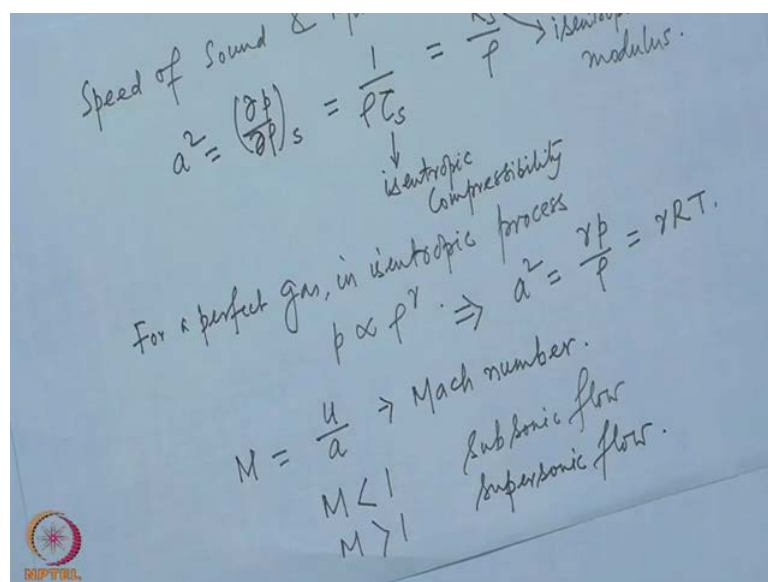 Speed of Sound &
a² = (∂p/∂ρ)ₛ = 1/(ρτₛ) = /ρ → isentropic
modulus.
↓
isentropic
Compressibility
For a perfect gas, in isentropic process
p ∝ ρ^γ. ⇒ a² = γp/ρ = γRT.
M = u/a → Mach number.
M < 1 Subsonic flow
M > 1 Supersonic flow.
NPTEL